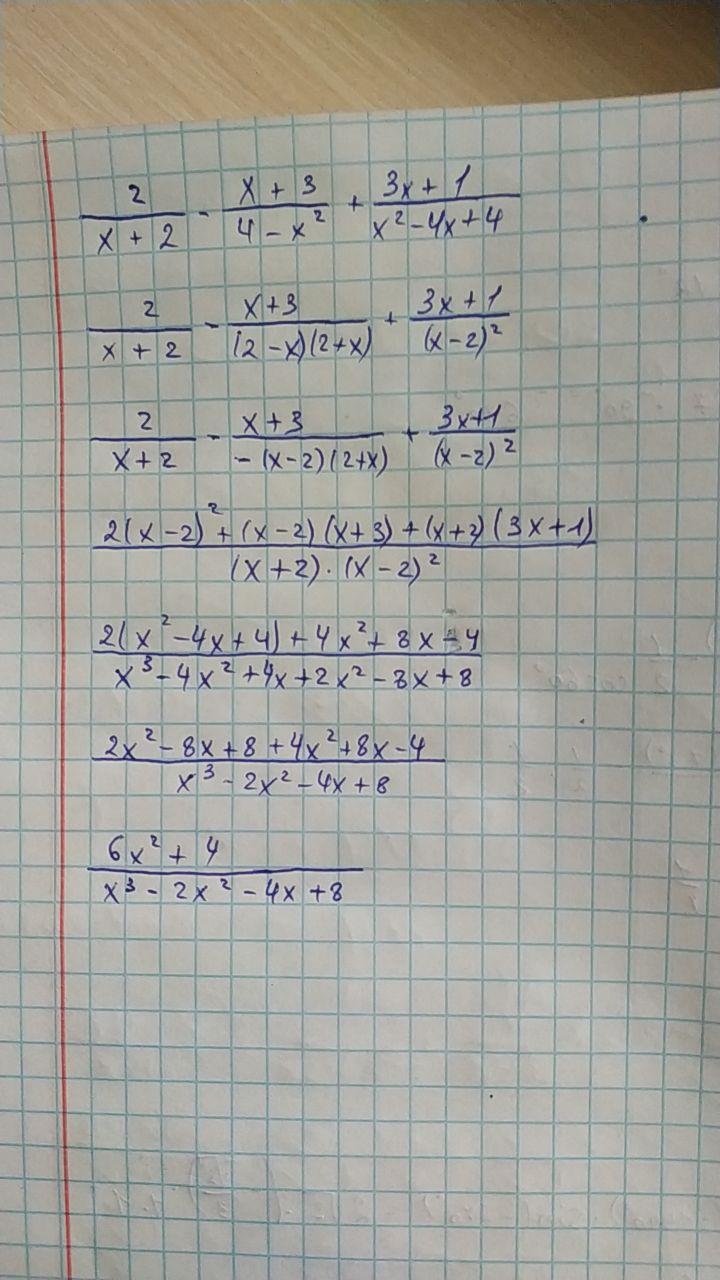 2/(x + 2) - (x + 3)/(4 - x²) + (3x + 1)/(x² - 4x + 4)
2/(x + 2) - (x + 3)/((2 - x)(2 + x)) + (3x + 1)/(x - 2)²
2/(x + 2) - (x + 3)/(-(x - 2)(2 + x)) + (3x + 1)/(x - 2)²
(2(x - 2)² + (x - 2)(x + 3) + (x + 2)(3x + 1))/((x + 2) · (x - 2)²)
(2(x² - 4x + 4) + 4x² + 8x - 4)/(x³ - 4x² + 4x + 2x² - 8x + 8)
(2x² - 8x + 8 + 4x² + 8x - 4)/(x³ - 2x² - 4x + 8)
(6x² + 4)/(x³ - 2x² - 4x + 8)